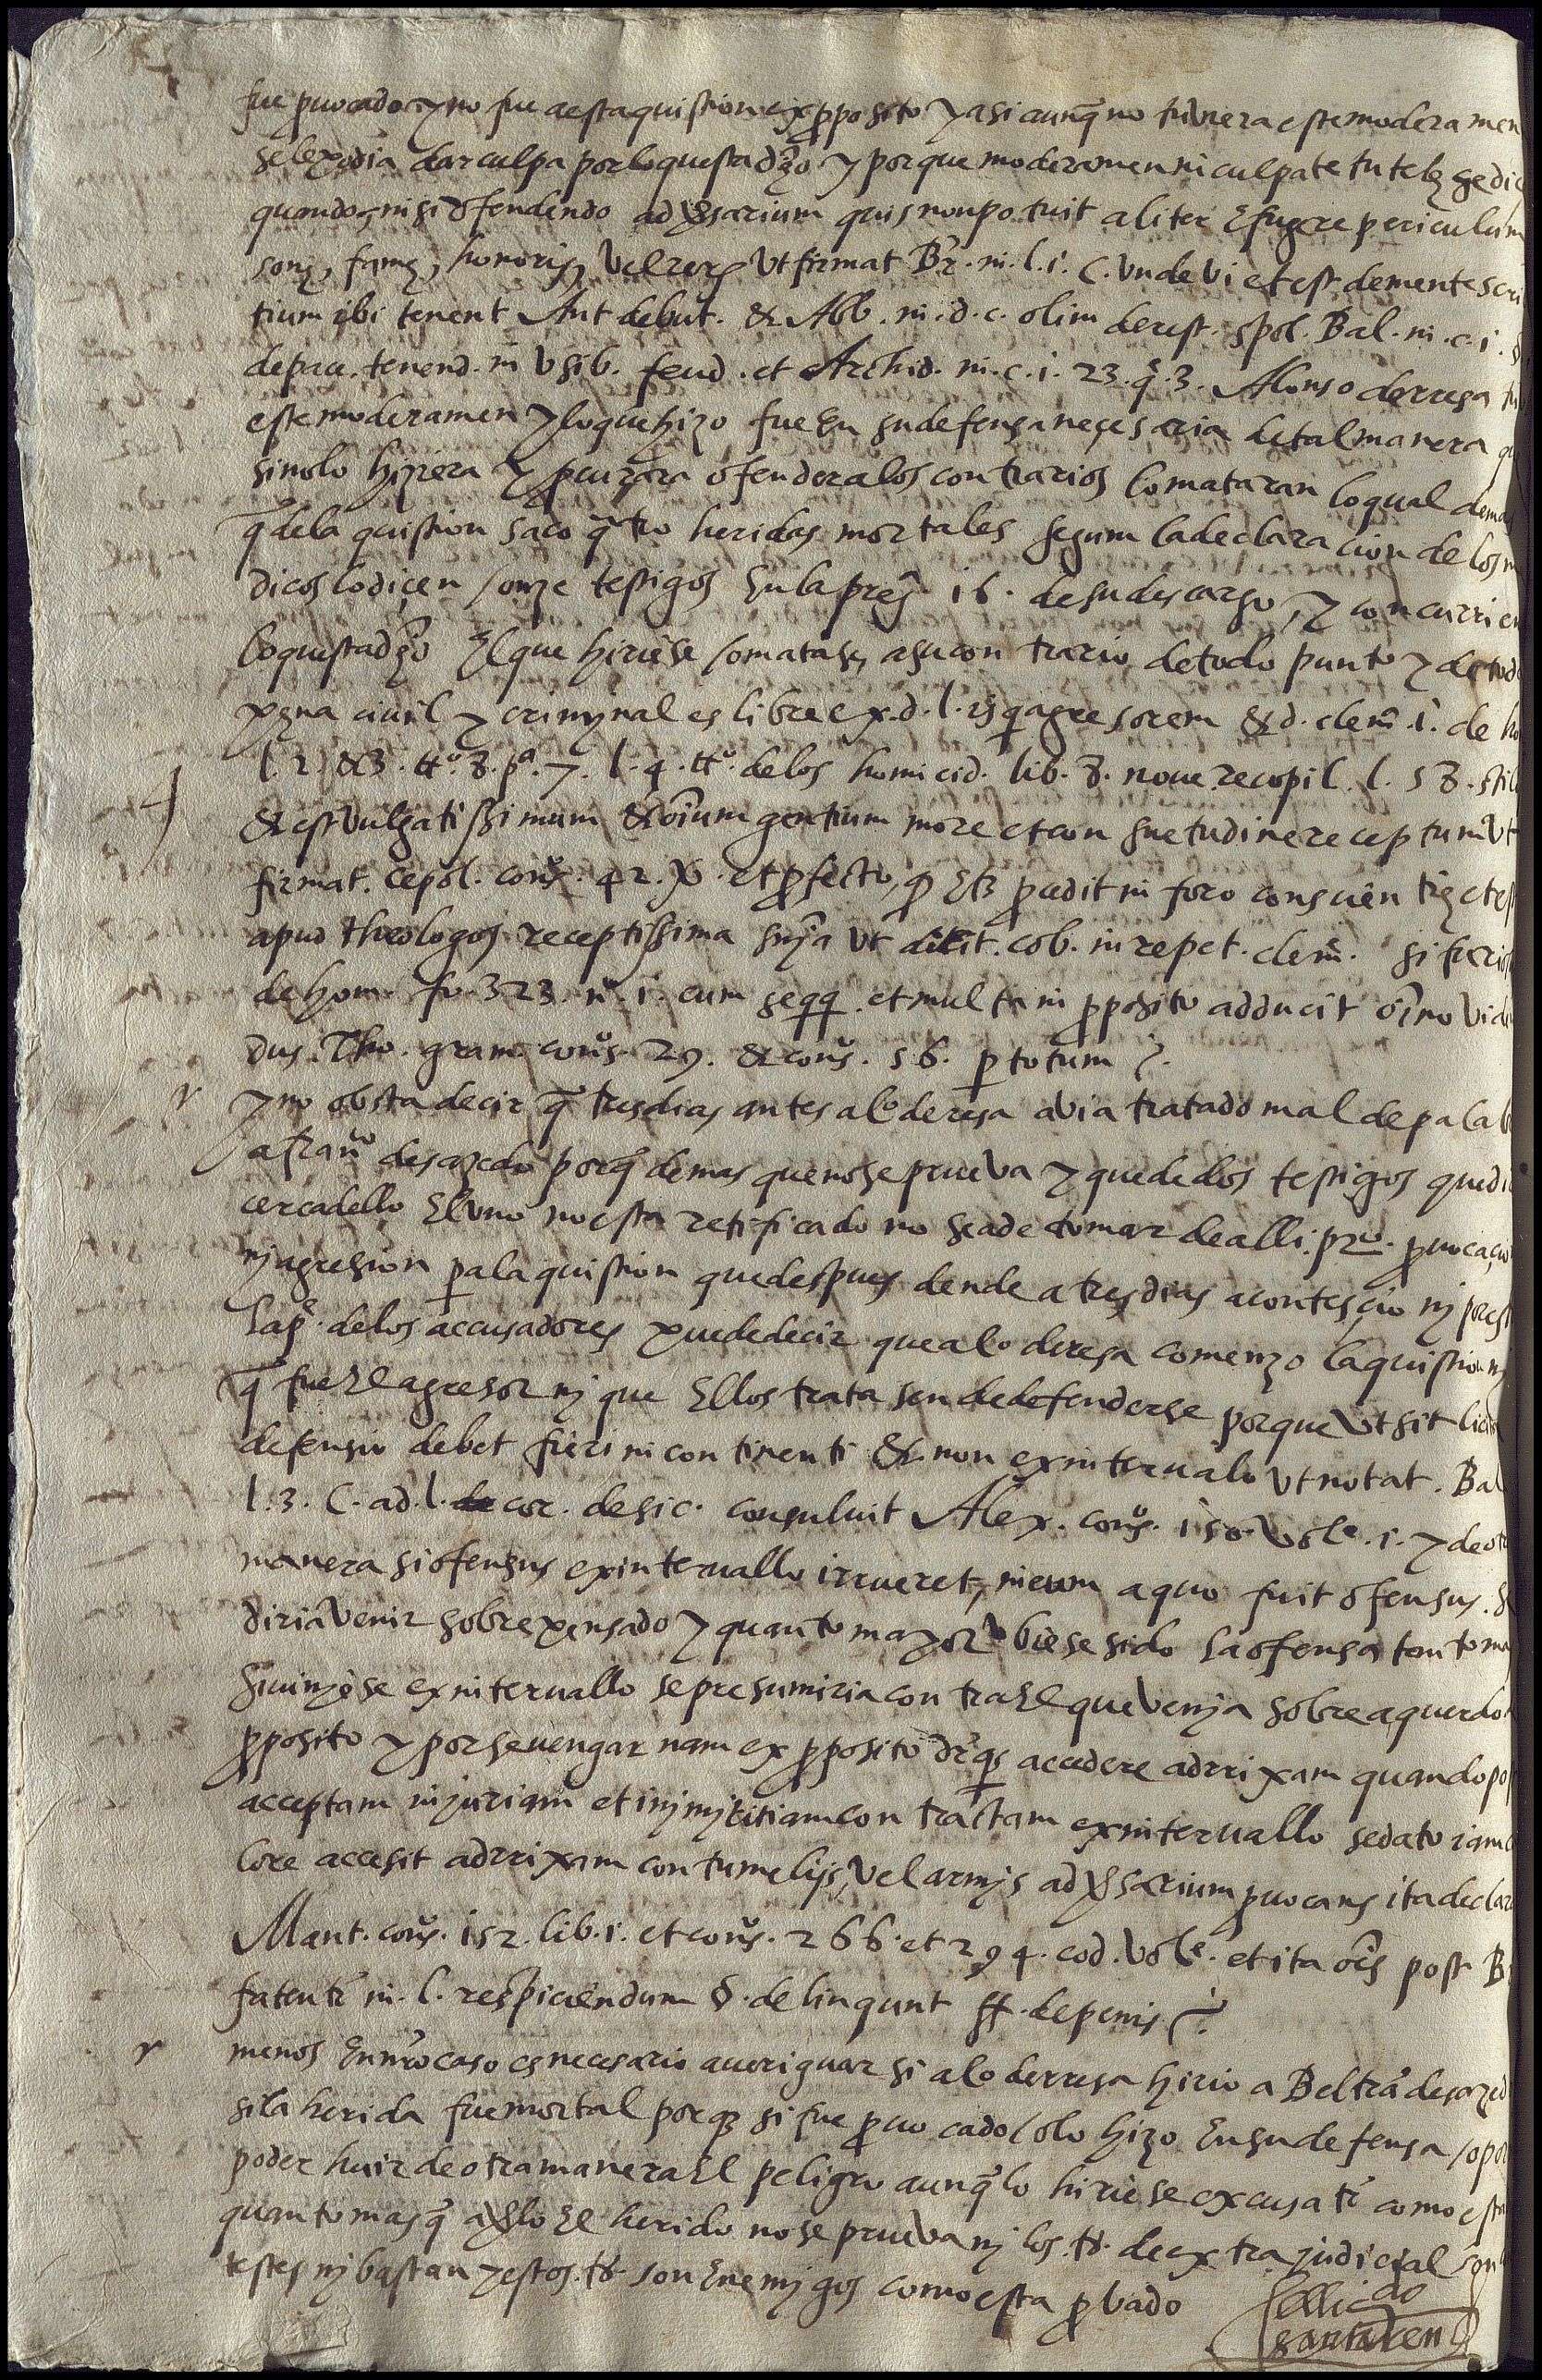 fue provocado y no fue a esta quistion ex pposito y asi aunq̃ no tuviera este moderamen
se le podia dar culpa por lo questa dho y porque moderamen inculpate tutele se dic
quando nisi ofendendo adversarium quis non potuit aliter efugere periculum
fame, honoris, vel rerum ut firmat Br. in. l. i. C. unde vi et est de mente scri
tium ibi tenent Ant de but. & Abb. in. d. c. olim de rest. spol. Bal. in. c. i.
de pace. tenend. in usib. feud. et Archid. in. c. i. 23. q. 3. Alonso de resa
este moderamen y lo que hizo fue en su defensa neçesaria de tal manera q
si no lo hiziera y pcurara ofender a los contrarios lo mataran lo qual demas
q̃ de la quistion saco q̃tro heridas mortales segum la declaracion de los m
dicos lo diçen onze testigos en la preg 16. de su descargo, y concurrien
lo questa dho El que hiriese o matase a su contrario de todo punto y de toda
pena civil y criminal es libre ex. d. l. is q agresorem & d. clem. i. de ho
l. 2. & 3. tto. 8. pa. 7. l. 4. tto. de los homicid. lib. 8. nove recopil. l. 58. stil
& est vulgatissimum & oium gentium more et consuetudine receptum ut
firmat. cepol. cons. 42. et pfecto, etz pcedit in foro conscientie et est
apud theologos receptissima snia ut dicit. cob. in repet. clem. si furios
de hom. fo. 323. no. i. cum seqq. et multa in pposito adducit oino viden
dus. Tho. gram. cons. 29. & cons. 56. p totum
y no obsta decir q̃ tres dias antes alo de resa avia tratado mal de palab
a franco de sazedo porq̃ demas que no se prueva y que de dos testigos que di
cerca dello El uno no esta retificado no se a de tomar de alli pvocaçio
ni agresion pa la quistion que despues dende a tres dias aconteçio ni por est
la pe. de los accusadores puede decir que alo de resa comenzo la quistion ni
q̃ fue El agresor ni que Ellos tratasen de defenderse porque ut sit licita
defensio debet fieri in continenti & non ex intervalo ut notat. Bal
l. 3. C. ad. l. cor. de sic. consuluit Alex. cons. 150. vole. i. y de otra
manera si ofensus ex intervallo irrueret in eum a quo fuit ofensus. se
diria venir sobre pensado y quanto mayor ubiese sido la ofensa tanto mas
si viniese ex intervallo se presumiria contra El que venia sobre aquerdo
pposito y por se vengar nam ex pposito dr qs accedere ad rrixam quando post
acceptam injuriam et inimicitiam contractam ex intervallo sedato iam ca
lore accesit ad rrixam contumeliis, vel armis adversarium pvocans ita declar
Mant. cons. 152. lib. i. et cons. 266. et 294. eod. vole. et ita oes post B
fatentr in. l. respiciendum §. delinqunt ff. de penis
menos En nro caso es necesario averiguar si alo de rresa hirio a Beltran de sazed
si la herida fue mortal porq̃ si fue pvocado o lo hizo En su defensa o por
poder huir de otra manera El peligro aunq̃ lo hiriese excusatr como esta
quanto mas q̃ averlo El herido no se prueva ni los ts. de extrajudicial son
testes ni bastan y estos ts. son Enemigos como esta pvado
El licdo
santaren